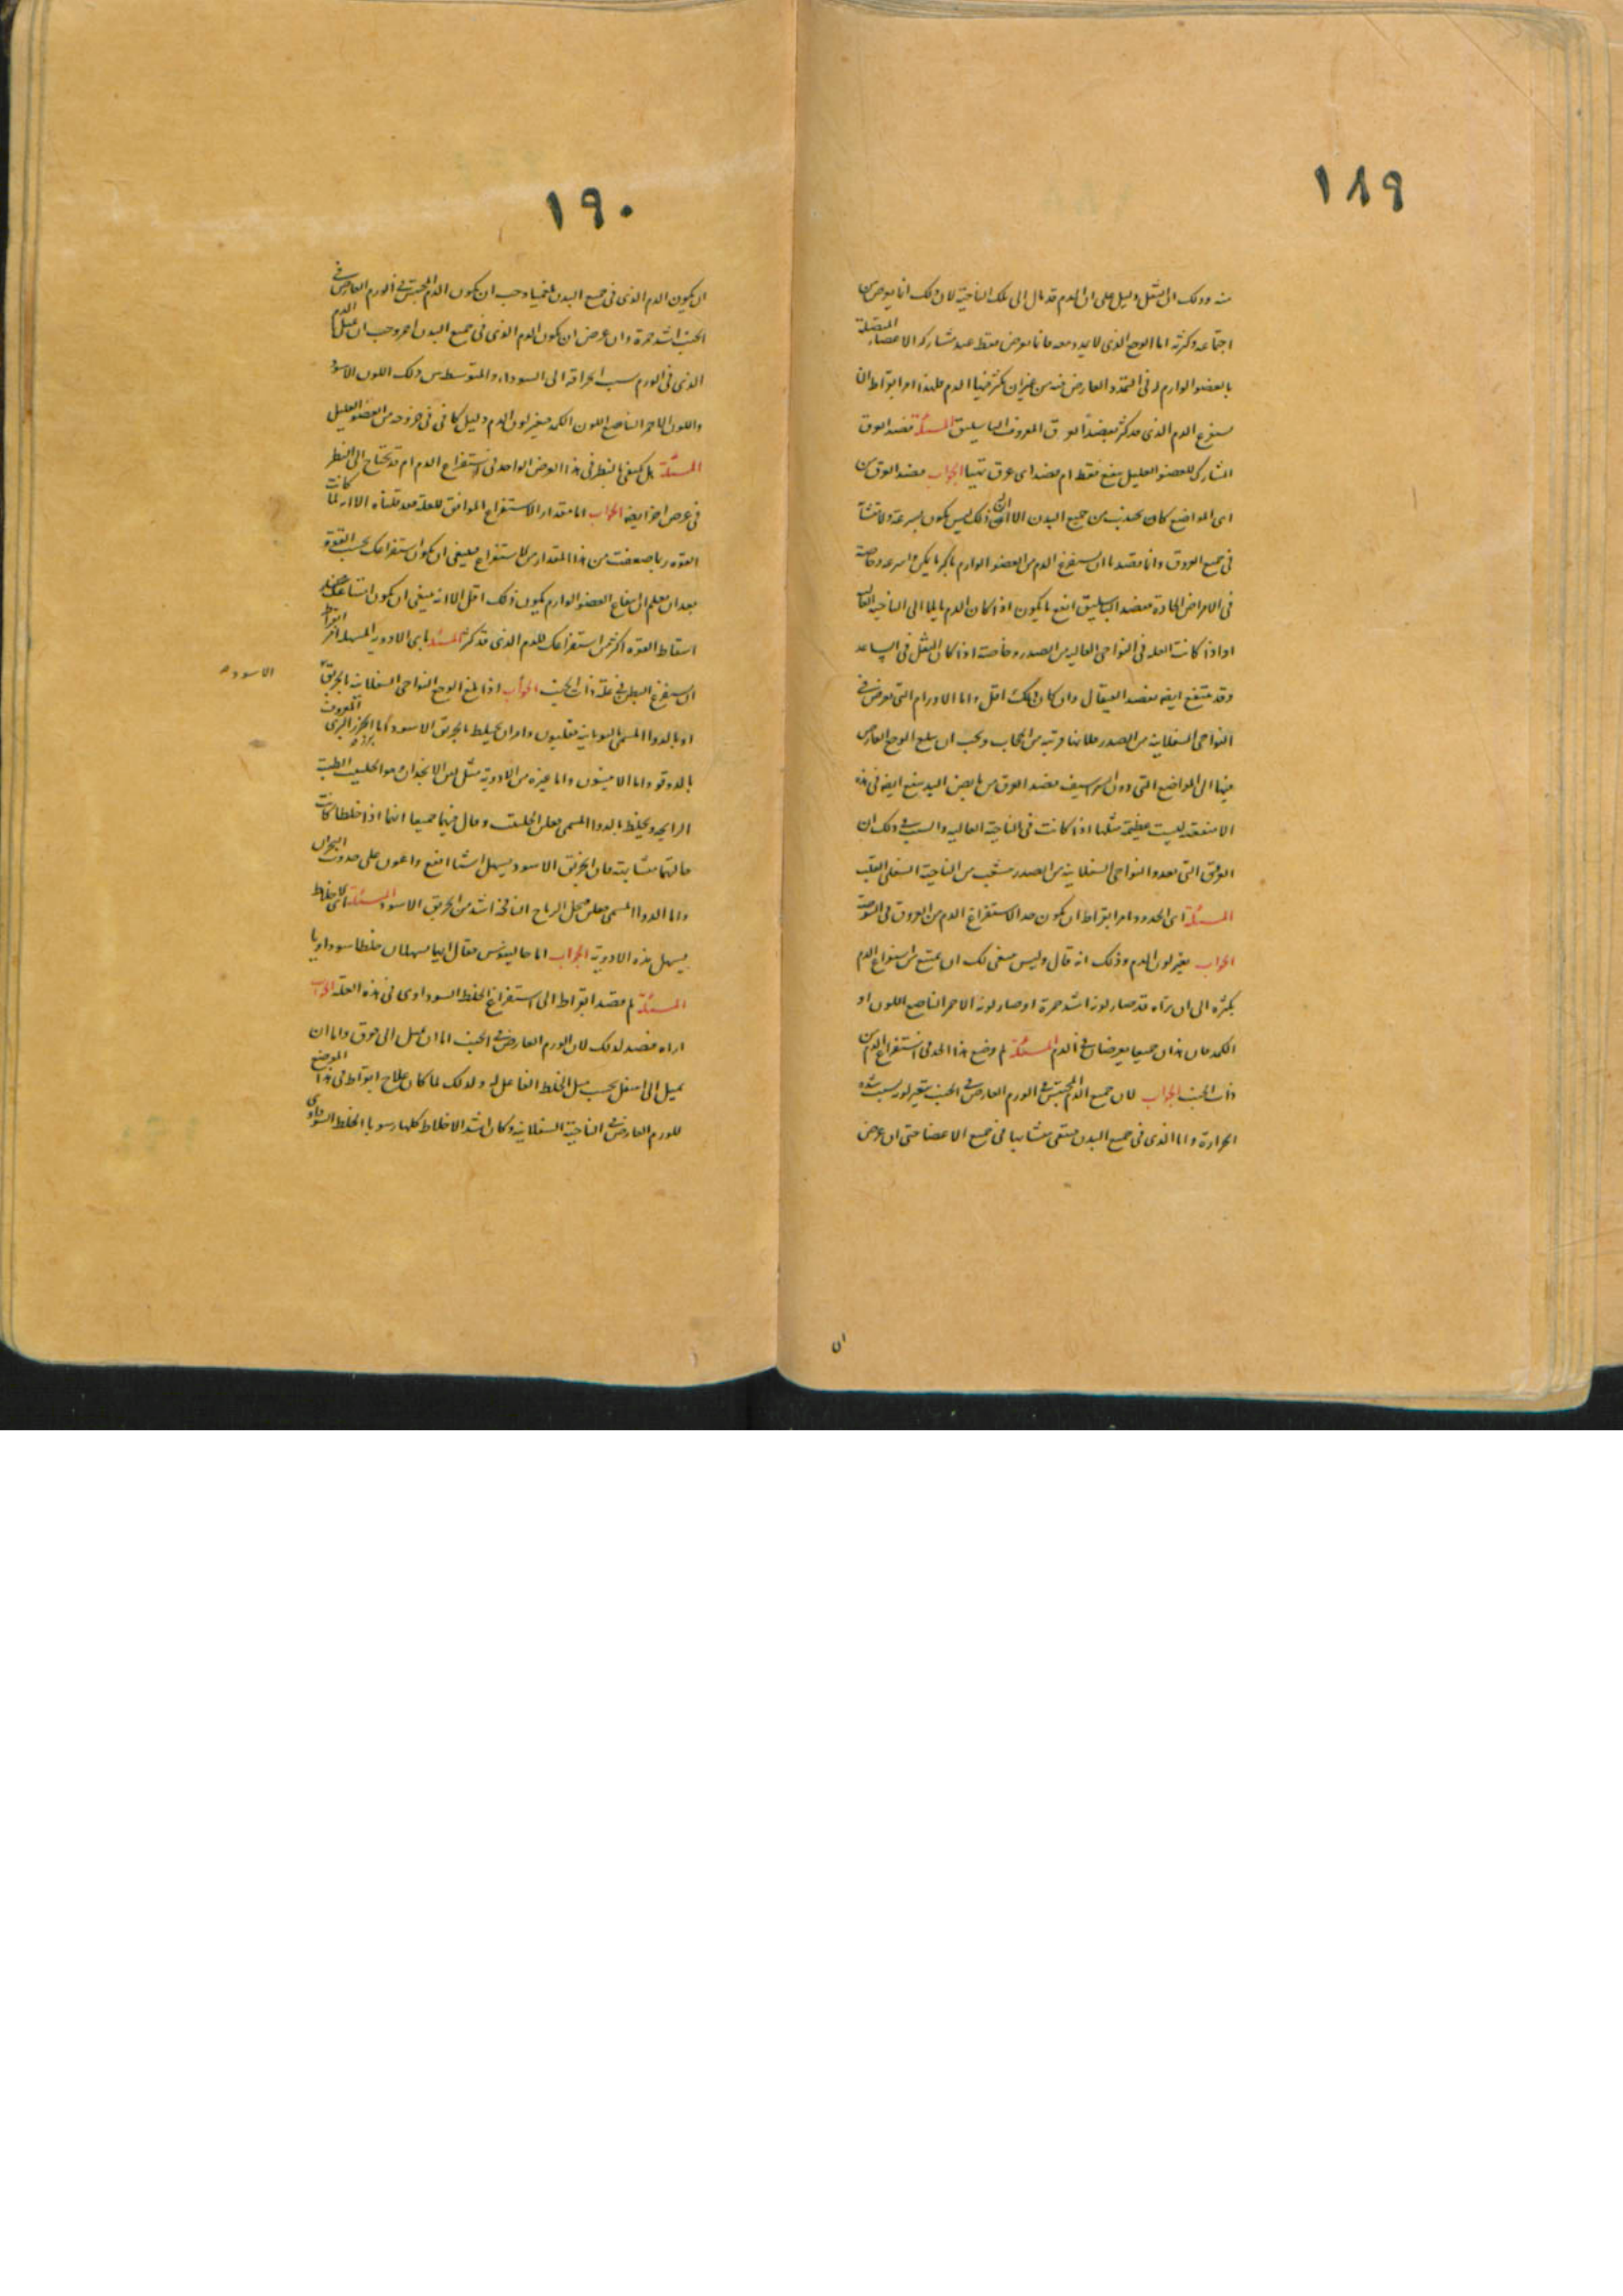 ١٨٩
منه وذلك ان الثقل دليل على ان الدم قد مال الى تلك الناحية لان ذلك انما يعرض من
اجتماعه وكثرته اما الوجع الذى لا يمدد معه فانما يعرض فقط عند مشاركة الاعضاء المتصلة
بالعضو الوارم له فى التمدد العارض فيه من غير ان يكثر فيها الدم فلهذا امر ابقراط ان
يستفرغ الدم الذى قد كثر بفصد العرق المعروف بالباسليق المسئلة فصد العرق
المشارك للعضو العليل ينفع فقط ام فصد اى عرق تهيا الجواب فصد العرق من
اى المواضع كان يجذب من جميع البدن الا ان ذلك ليس يكون بسرعة ولا
فى جميع العروق وانما قصدنا ان يستفرغ الدم من العضو الوارم باكثر ما يمكن واسرعه وخاصة
فى الامراض الحادة ففصد الباسليق انفع ما يكون اذا كان الدم مايلا الى الناحية
او اذا كانت العلة فى النواحى العالية من الصدر وخاصة اذا كان الثقل فى الساعد
وقد ينتفع ايضا بفصد القيفال وان كان ذلك اقل واما الاورام التى تعرض فى
النواحى السفلانية من الصدر فلانها قريبة من الحجاب ويجب ان يبلغ الوجع العارض
فيها الى المواضع التى دون الشراسيف ففصد العرق من مابض اليد ينفع ايضا فى هذه
الا منفعته ليست عظيمة مثلها اذا كانت فى الناحية العالية والسبب فى ذلك ان
العروق التى تغذو النواحى السفلانية من الصدر تنشعب من الناحية السفلى القلب
المسئلة اى الحدود امر ابقراط ان يكون حد الاستفراغ الدم من العروق فى الشوصة
الجواب تغير لون الدم وذلك انه قال وليس ينبغى لك ان تمتنع من استفراغ الدم
بكثرة الى ان تراه قد صار لونه اشد حمرة او صار لونه الاحمر الناصع اللون او
الكمد فان هذان جميعا يعرضان فى الدم المسئلة لم وضع هذا الحد فى استفراغ الدم من
ذات الجنب الجواب لان جميع الدم المحتبس فى الورم العارض فى الجنب يتغير لونه بسبب شدة
الحرارة واما الذى فى جميع البدن فيبقى متشابها فى جميع الاعضا حتى ان عرض
ان
١٩٠
ان يكون الدم الذى فى جميع البدن بلغميا وجب ان يكون الدم المحتبس فى الورم العارض فى
الجنب اشد حمرة وان عرض ان يكون الدم الذى فى جميع البدن احمر وجب ان يميل الدم
الذى فى الورم بسبب احراقه الى السوداء والمتوسط بين ذلك اللون الاسود
واللون الاحمر الناصع اللون الكمد فتغير لون الدم دليل كافى فى خروجه من العضو العليل
المسئلة هل يكتفى بالنظر فى هذا العرض الواحد فى استفراغ الدم ام قد تحتاج الى النظر
فى عرض اخر ايضا الجواب اما مقدار الاستفراغ الموافق للعلة فقد قلناه الا انه لما كانت
القوة ربما ضعفت من هذا المقدار من الاستفراغ فينبغى ان يكون استفراغك بحسب القوة
بعد ان تعلم ان انتفاع العضو الوارم يكون بذلك اقل الا انه ينبغى ان يكون امتناعك عند
اسقاط القوة اكثر من استفراغك للدم الذى قد كثر المسئلة باى الادوية المسهلة امر ابقراط
ان يستفرغ البطن فى علة ذات الجنب الجواب اذا بلغ الوجع النواحى السفلانية بالخربق
الاسود
او بالدوا المسمى باليونانية فعلينون وامر ان يخلط بالخربق الاسود اما الجزر البرى المعروف بزره
بالدوقو واما الانيسون واما غيره من الادوية مثل لبن الانجدان وهو الحلتيت الطيب
الرايحة ويخلط بالدوا المسمى فعلن الحلتيت وقال فيهما جميعا انهما اذا خلطا كانت
حالتهما متشابهة فان الخربق الاسود يسهل اشيا انفع واعون على حدوث البحران
واما الدوا المسمى فعلن فيحل الرياح النافخة اشد من الخربق الاسود المسئلة اى الاخلاط
يسهل هذه الادوية الجواب اما جالينوس فقال انهما يسهلان خلطا سوداويا
المسئلة لم قصد ابقراط الى استفراغ الخلط السوداوى فى هذه العلة الجواب
اراه قصد لذلك لان الورم العارض فى الجنب اما ان يميل الى فوق واما ان
يميل الى اسفل بحسب ميل الخلط الفاعل له ولذلك لما كان علاج ابقراط فى هذا الموضع
للورم العارض فى الناحية السفلانية وكان اشد الاخلاط كلها رسوبا الخلط السوداوى